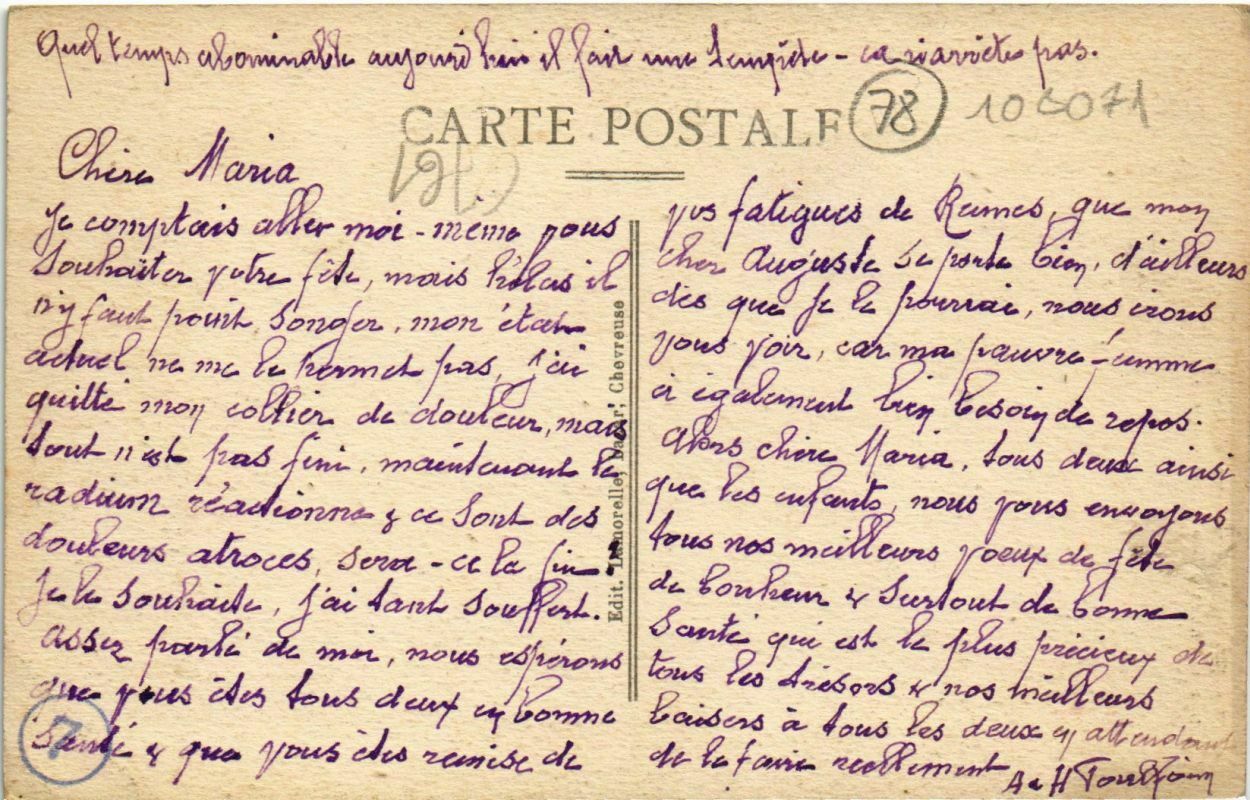 Quel temps abominable aujourd'hui il fait une tempête - ca n'arrête pas.
CARTE POSTALE
78
103071
Chère Maria
Je comptais aller moi-même vous
souhaiter votre fête, mais hélas il
n'y faut point songer, mon état
actuel ne me le permet pas, j'ai
quitté mon collier de douleur, mais
tout n'est pas fini, maintenant le
radium réactionne & ce sont des
douleurs atroces, sera-ce la fin
Je le souhaite, j'ai tant souffert.
Assez parlé de moi, nous espérons
que vous êtes tous deux en bonne
santé & que vous êtes remise de
7
Edit. Lamorelle, Bazar, Chevreuse
vos fatigues de Rames, que mon
cher Auguste se porte bien, d'ailleurs
dès que je le pourrai, nous irons
vous voir, car ma pauvre femme
a également bien besoin de repos.
Alors chère Maria, tous deux ainsi
que les enfants, nous vous envoyons
tous nos meilleurs voeux de fête
de bonheur & surtout de bonne
santé qui est le plus précieux de
tous les trésors & nos meilleurs
baisers à tous les deux en attendant
de le faire reellement
A & H